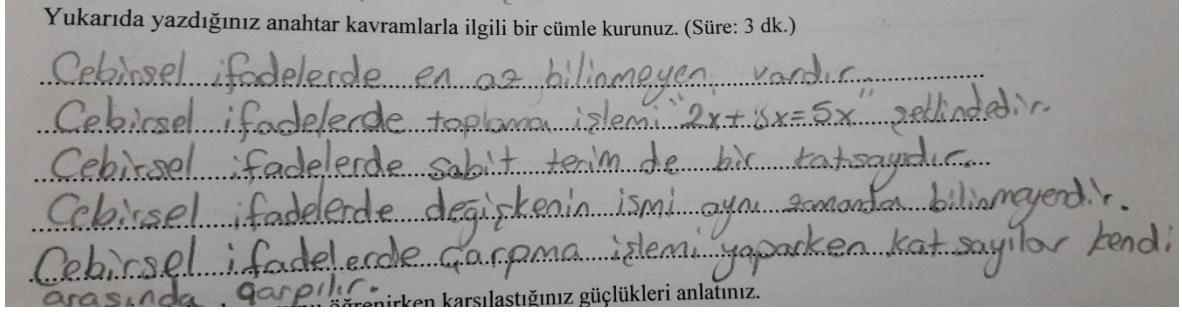 Yukarıda yazdığınız anahtar kavramlarla ilgili bir cümle kurunuz. (Süre: 3 dk.)
Cebirsel ifadelerde en az bilinmeyen vardır.
Cebirsel ifadelerde toplama işlemi "2x+3x=5x" şeklindedir.
Cebirsel ifadelerde sabit terim de bir katsayıdır.
Cebirsel ifadelerde değişkenin ismi aynı zamanda bilinmeyendir.
Cebirsel ifadelerde çarpma işlemi yaparken katsayılar kendi
arasında çarpılır.
öğrenirken karşılaştığınız güçlükleri anlatınız.